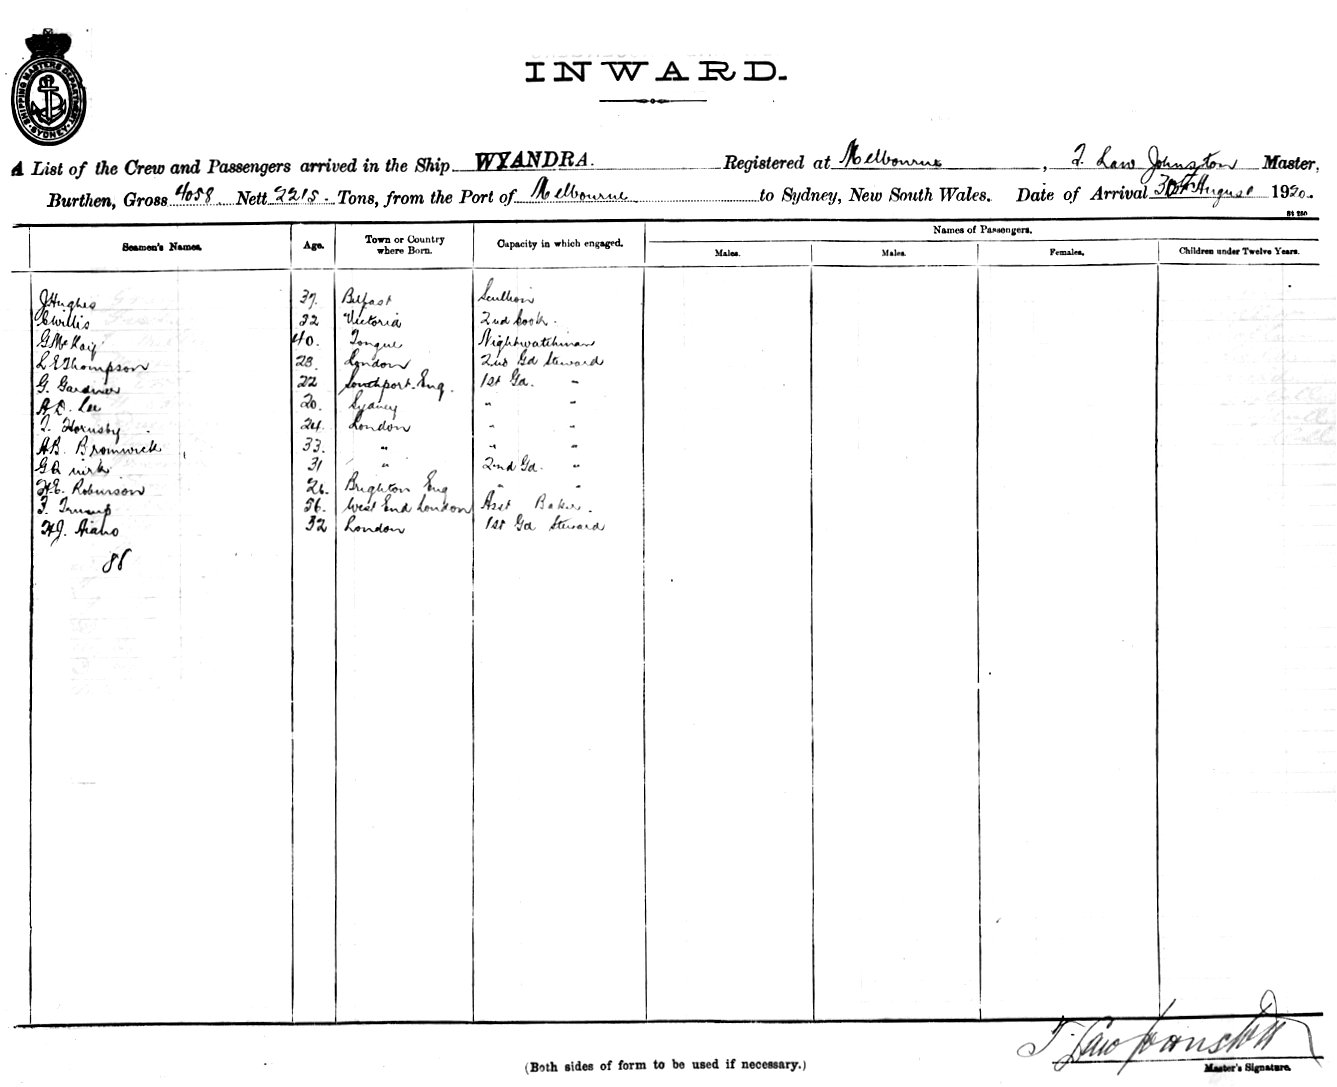 SHIPPING MASTERS DEPARTMENT
SYDNEY
INWARD.
A List of the Crew and Passengers arrived in the Ship WYANDRA. Registered at Melbourne, T. Law Johnston Master,
Burthen, Gross 4058 Nett 2215. Tons, from the Port of Melbourne to Sydney, New South Wales. Date of Arrival 30th August 1920.
Seamen's Names. Age. Town or Country where Born. Capacity in which engaged. Names of Passengers.
Males. Males. Females. Children under Twelve Years.
J Hughes 37. Belfast Scullion
C Willis 32 Victoria 2nd Cook.
G McKay 40. Tongue Nightwatchman
L E Thompson 23. London 2nd Gd Steward
G. Gardner 22 Southport. Eng. 1st Gd. "
A D. Lee 20. Sydney " "
T. Hornsby 24. London " "
A B. Bromwick 33. " " "
G Quirk 31 " 2nd Gd. "
H.E. Robinson 26. Brighton Eng " "
F. 56. West End London Asst Baker.
H J. 32 London 1st Gd Steward
88
T. Law Johnston
Master's Signature.
(Both sides of form to be used if necessary.)